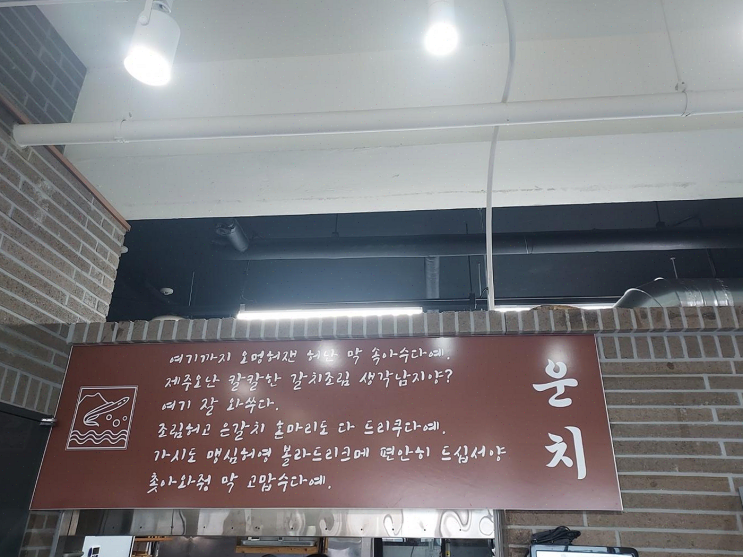 여기까지 오멍허잰 허난 막 속아수다예.
제주오난 칼칼한 갈치조림 생각남지양?
여기 잘 와쑤다.
조림허고 은갈치 혼마리도 다 드리쿠다예.
가시도 맹심허영 볼라드리크메 편안히 드십서양
촟아와줭 막 고맙수다예.
운치